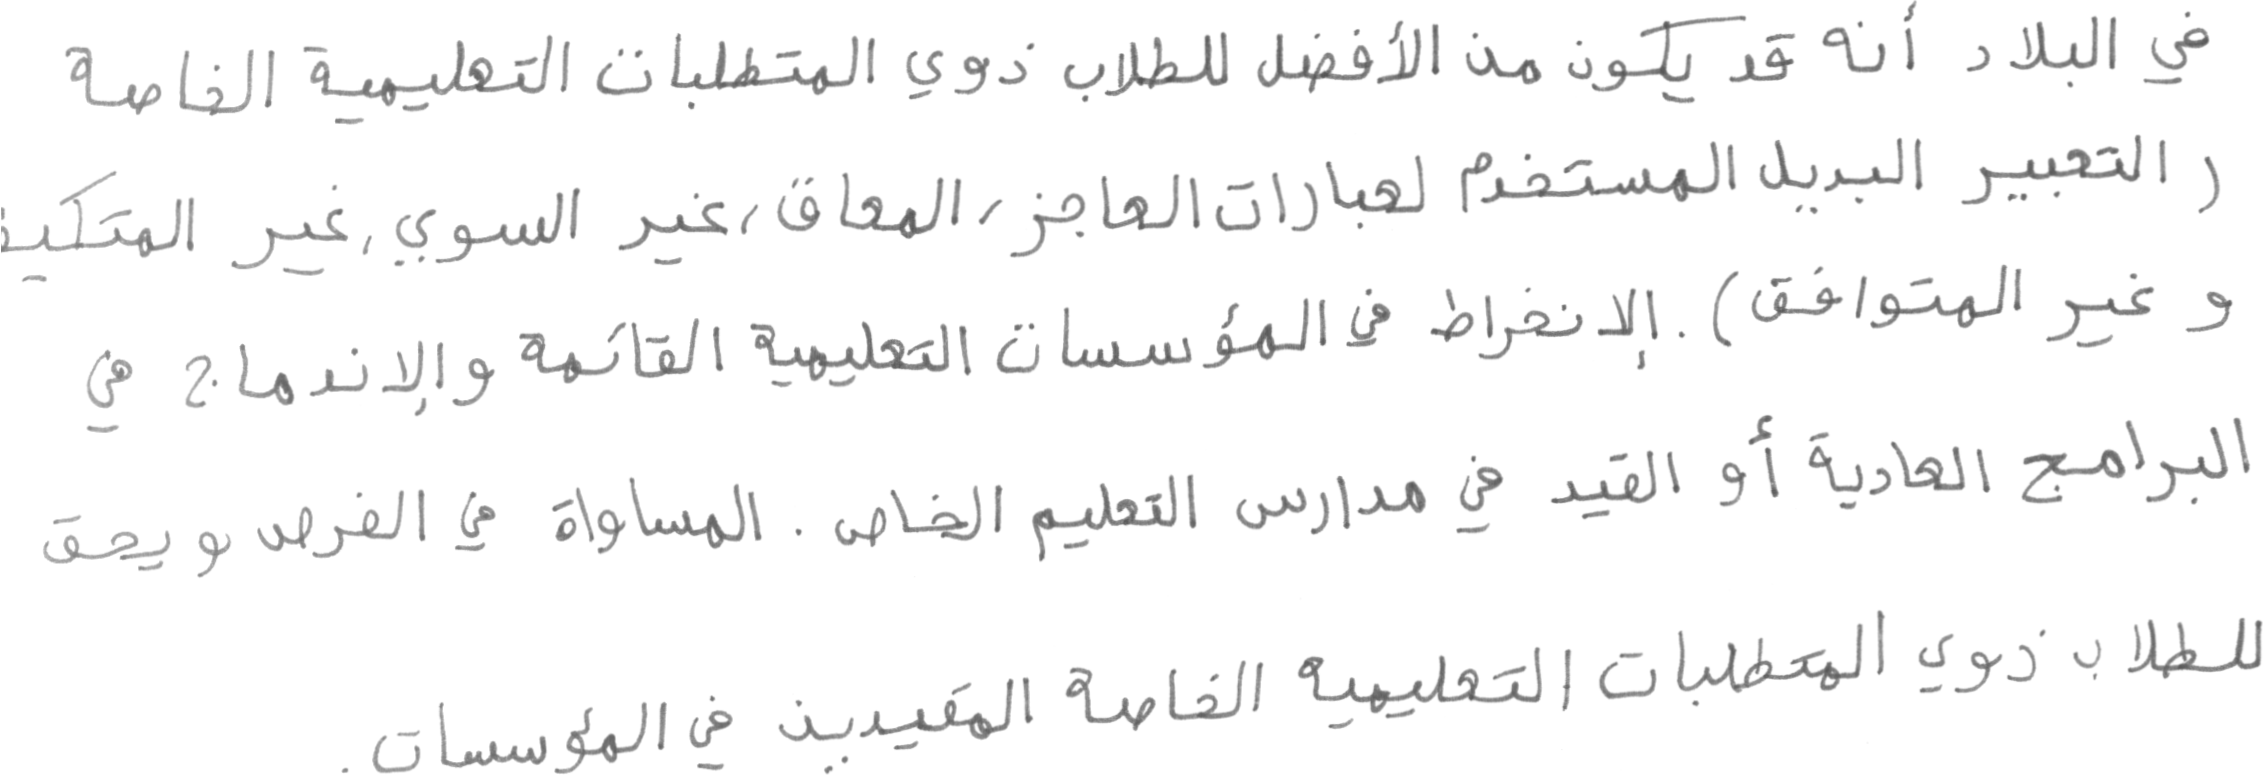 في البلاد أنه قد يكون من الأفضل للطلاب ذوي المتطلبات التعليمية الخاصة
( التعبير البديل المستخدم لعبارات العاجز، المعاق، غير السوي، غير المتكيف
و غير المتوافق). الإنخراط في المؤسسات التعليمية القائمة والإندماج في
البرامج العادية أو القيد في مدارس التعليم الخاص. المساواة في الفرص و يحق
للطلاب ذوي المتطلبات التعليمية الخاصة المقيدين في المؤسسات.